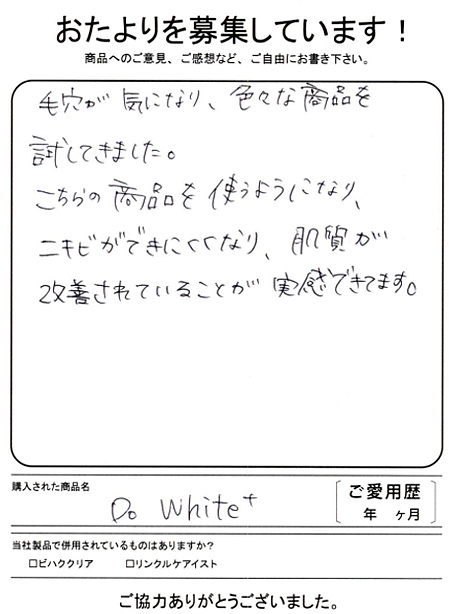 おたよりを募集しています！
商品へのご意見、ご感想など、ご自由にお書き下さい。
毛穴が気になり、色々な商品を
試してきました。
こちらの商品を使うようになり、
ニキビができにくくなり、肌質が
改善されていることが実感できてます。
購入された商品名
Do White+
ご愛用歴
年 ヶ月
当社製品で併用されているものはありますか？
□ビハククリア □リンクルケアイスト
ご協力ありがとうございました。